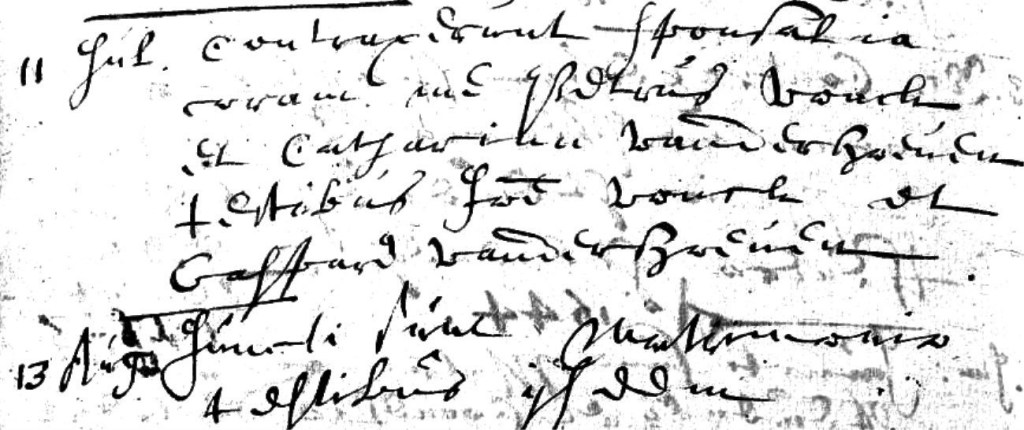 11 Jul. Contraxerunt sponsalia
coram me Petrus Vonck
et Catharina Vanderhreuen
testibus Joe Vonck et
Gaspard Vanderhreuen.
13 Aug Juncti sunt Matrimonio
testibus ijsdem